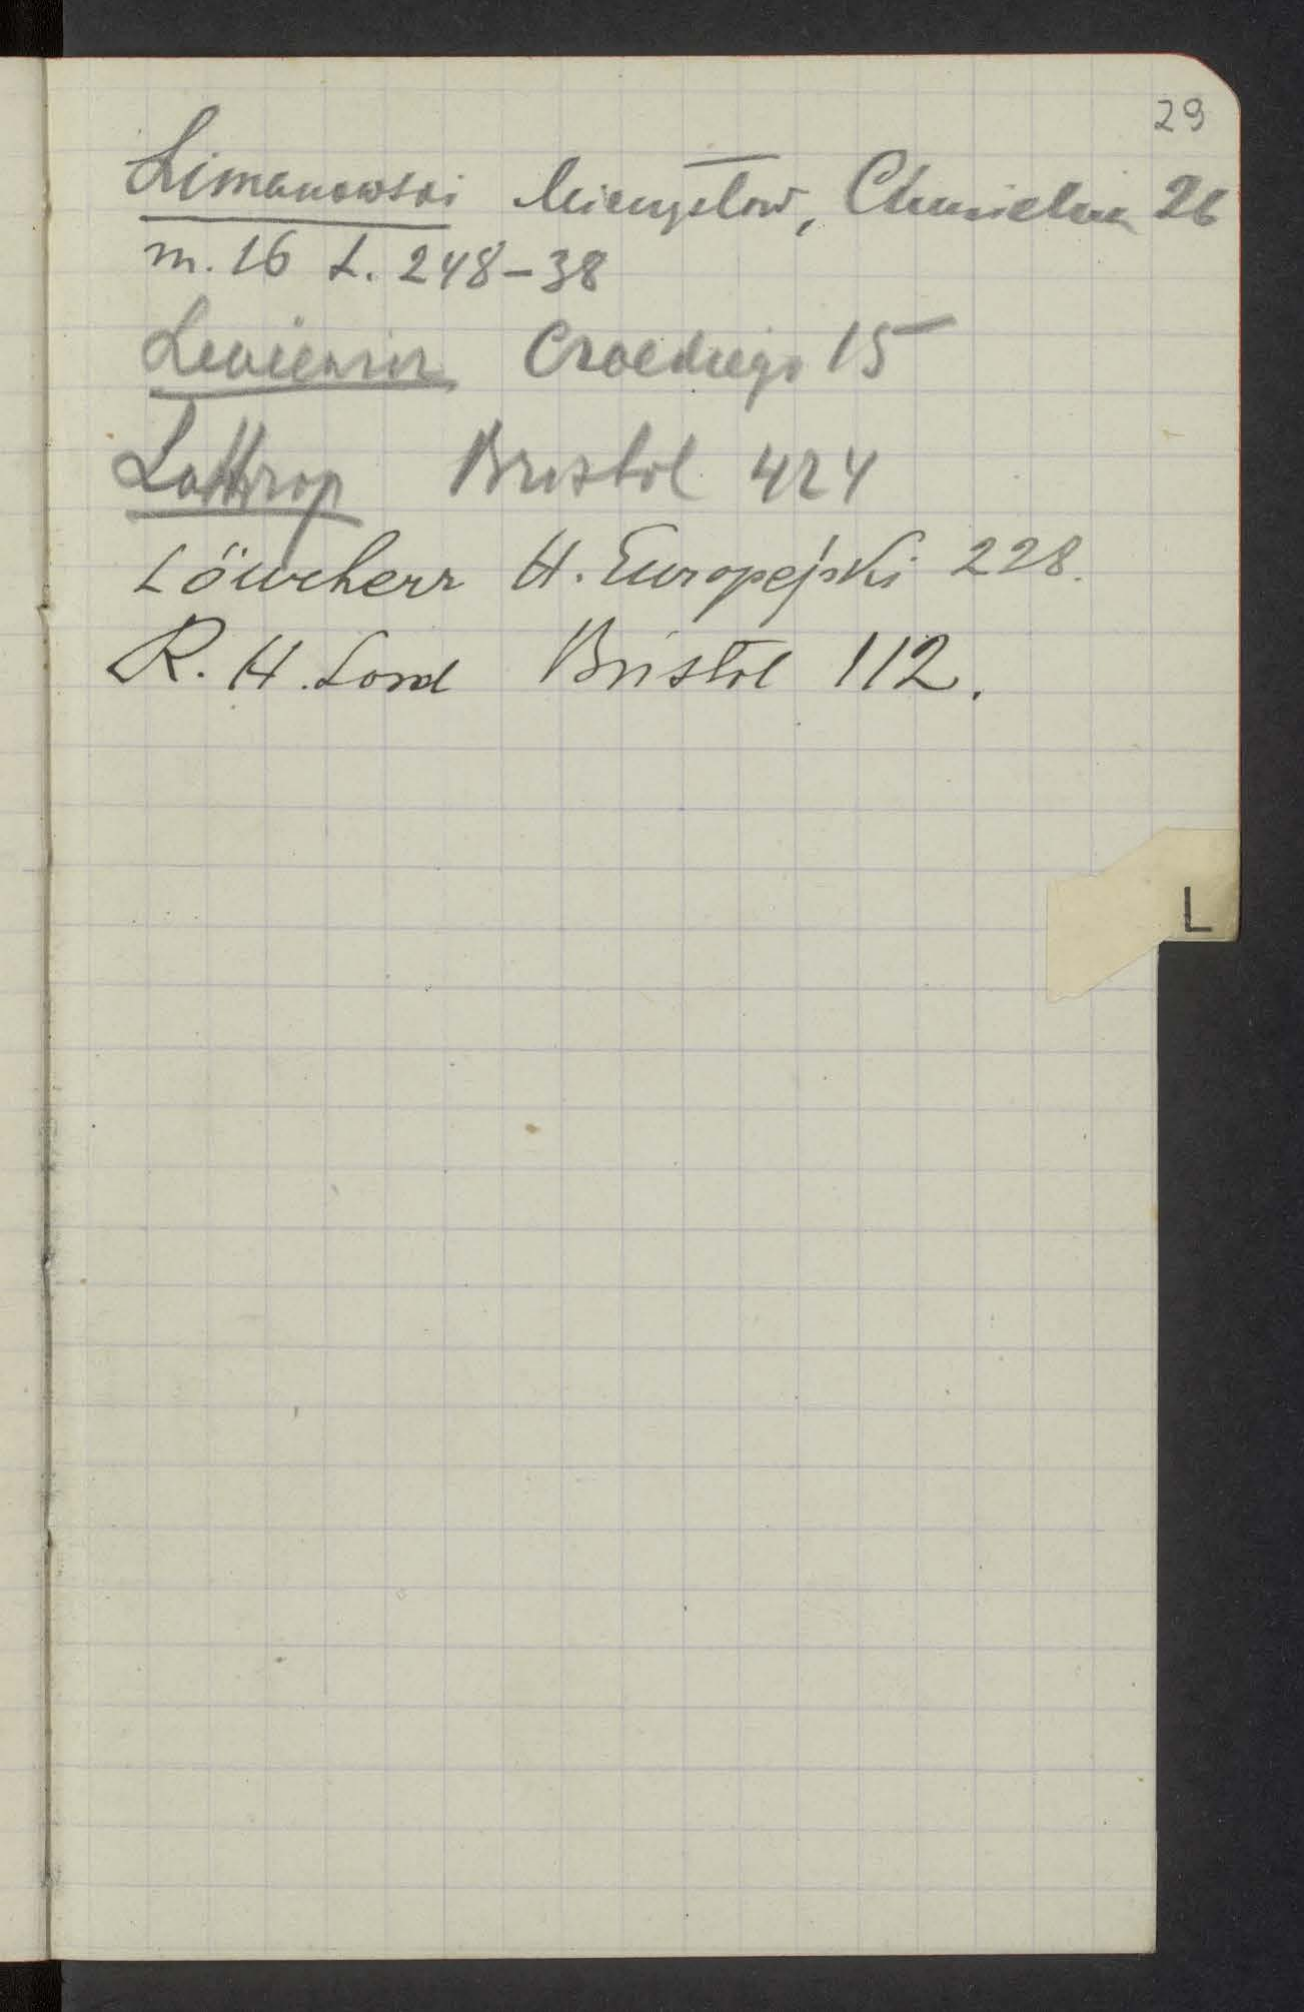 29
Limanowski Mieczysław, Chmielna 26
m. 16 t. 248-38
Czackiego 15
Lothrop Bristol 424
Löwcherr H. Europejski 228.
R. H. Lord Bristol 112.
L